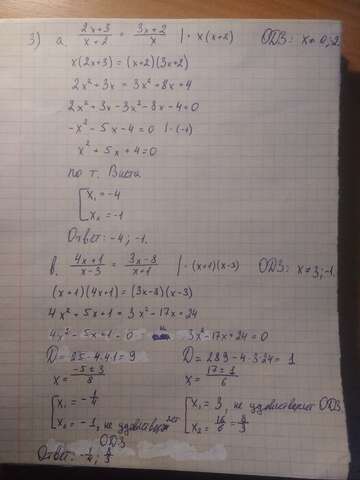 3) а. (2x+3)/(x+2) = (3x+2)/x | · x(x+2) ОДЗ: x ≠ 0; 2
x(2x+3) = (x+2)(3x+2)
2x² + 3x = 3x² + 8x + 4
2x² + 3x - 3x² - 8x - 4 = 0
-x² - 5x - 4 = 0 | · (-1)
x² + 5x + 4 = 0
по т. Виета
[ x₁ = -4
x₂ = -1
Ответ: -4; -1.
в. (4x+1)/(x-3) = (3x-8)/(x+1) | · (x+1)(x-3) ОДЗ: x ≠ 3; -1.
(x+1)(4x+1) = (3x-8)(x-3)
4x² + 5x + 1 = 3x² - 17x + 24
4x² - 5x + 1 = 0 и 3x² - 17x + 24 = 0
D = 25 - 4·4·1 = 9 D = 289 - 4·3·24 = 1
x = (-5±3)/8 x = (17±1)/6
[ x₁ = -1/4 [ x₁ = 3, не удовлетворяет ОДЗ
x₂ = -1, не удовлетворяет x₂ = 16/6 = 8/3
ОДЗ
Ответ: -1/4; 8/3